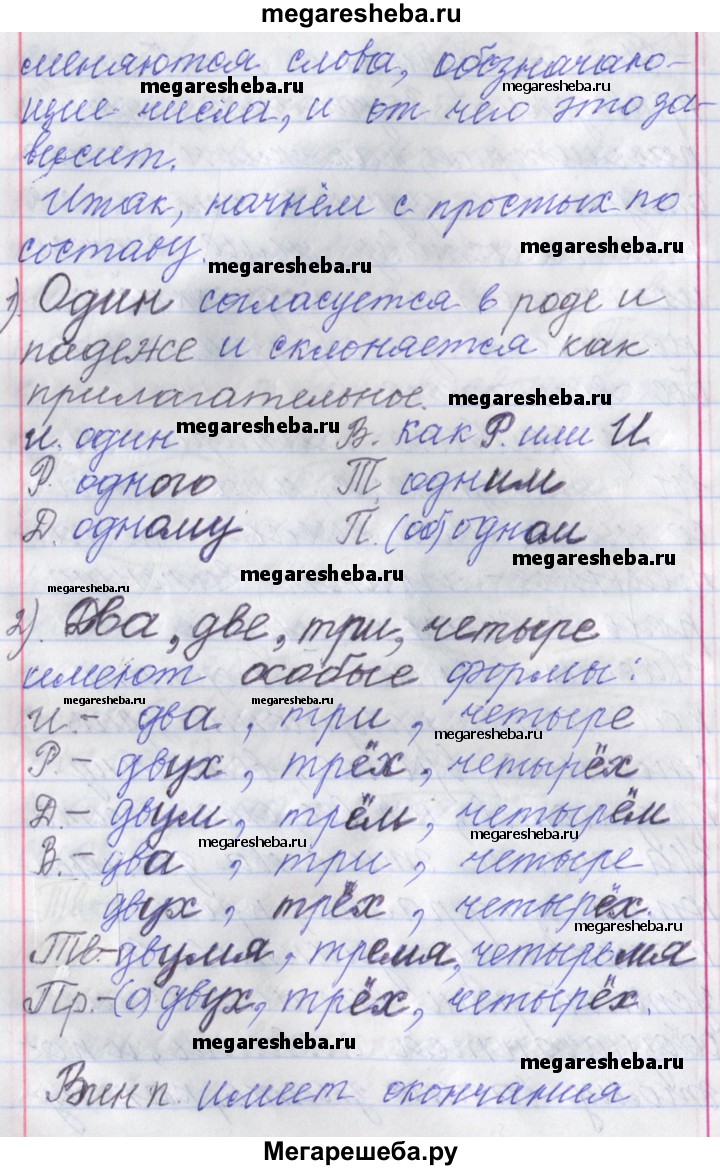 megaresheba.ru
сменяются слова, обозначаю-
megaresheba.ru megaresheba.ru
щие числа, и от чего это за-
висит.
Итак, начнём с простых по
составу. megaresheba.ru
megaresheba.ru
1). Один согласуется в роде и
падеже и склоняется как
прилагательное. megaresheba.ru
и. один megaresheba.ru В. как Р. или И.
Р. одного Т. одним
Д. одному П. (об) одном
megaresheba.ru
megaresheba.ru
megaresheba.ru
2). Два, две, три, четыре
имеют особые формы:
megaresheba.ru megaresheba.ru
и. - два, три, четыре
megaresheba.ru
Р. - двух, трёх, четырёх
Д. - двум, трём, четырём
megaresheba.ru megaresheba.ru
В. - два, три, четыре
двух, трёх, четырёх.
megaresheba.ru
Тв. - двумя, тремя, четырьмя
Пр. - (о) двух, трёх, четырёх.
megaresheba.ru
megaresheba.ru
Вин п. имеет окончания
Мегарешеба.ру